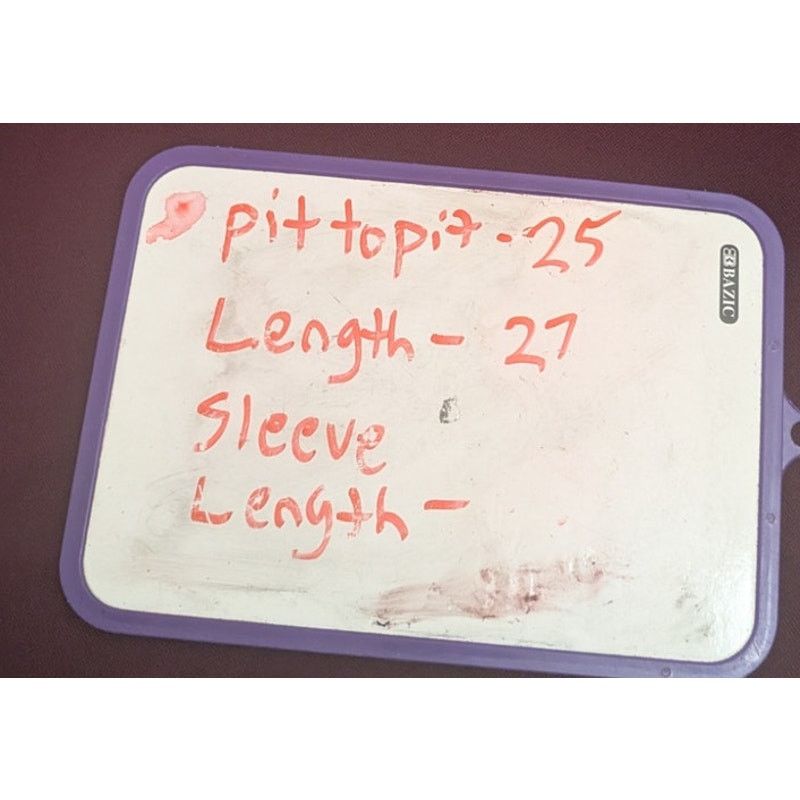 pit to pit - 25
Length - 27
Sleeve
Length -
BAZIC